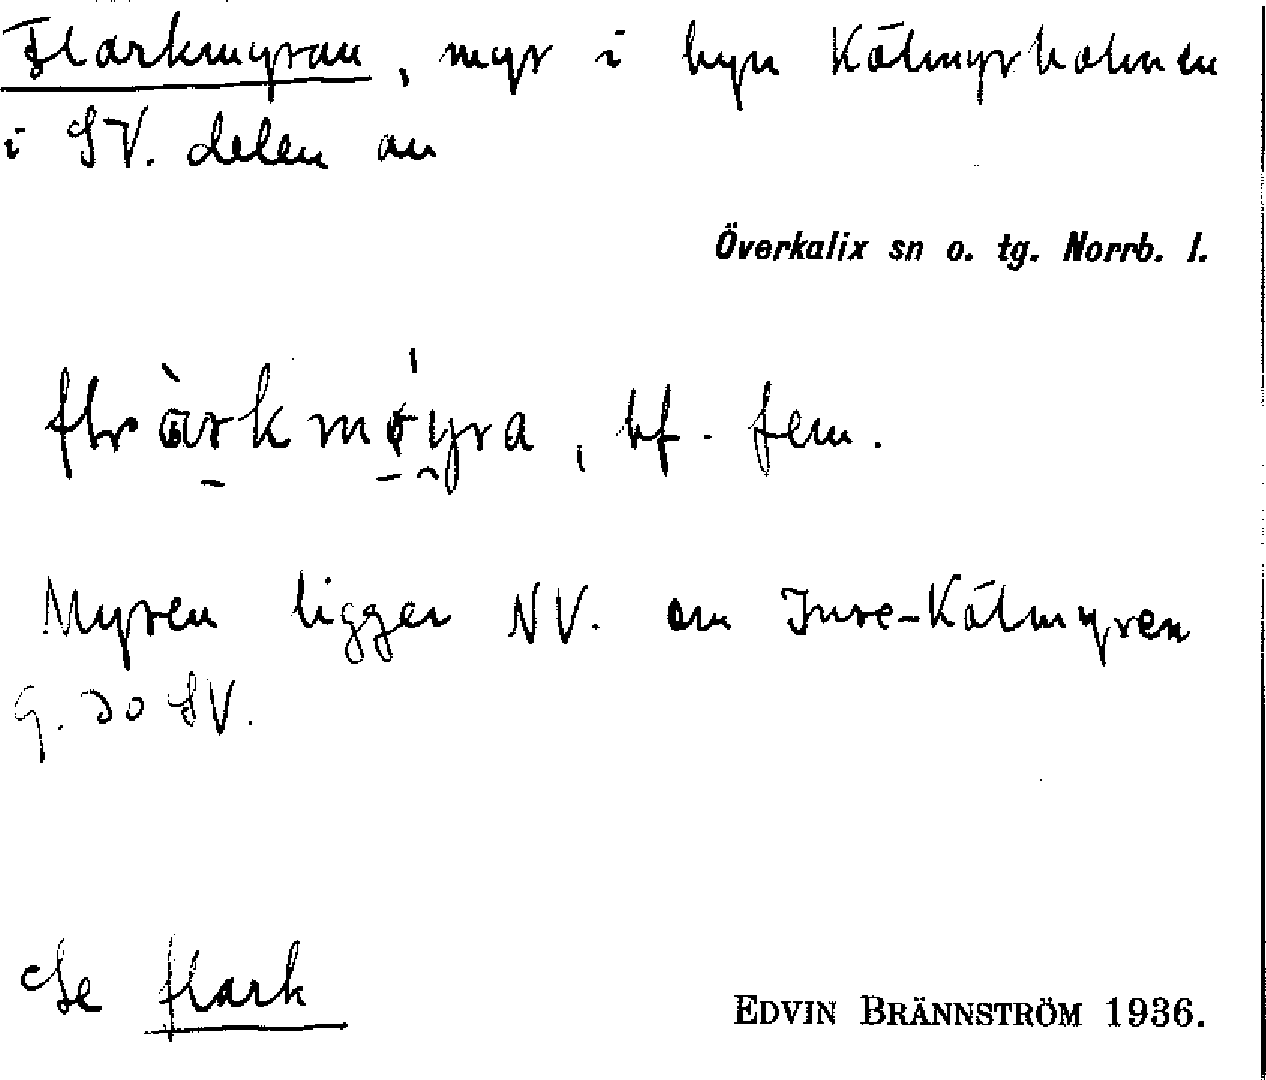 Flarkmyran, myr i byn Kälmyrholmen
i SV. delen av
Överkalix sn o. tg. Norrb. l.
bf. fem.
Myren ligger NV. om Inre-Kälmyren
9. do SV.
Se flark
EDVIN BRÄNNSTRÖM 1936.